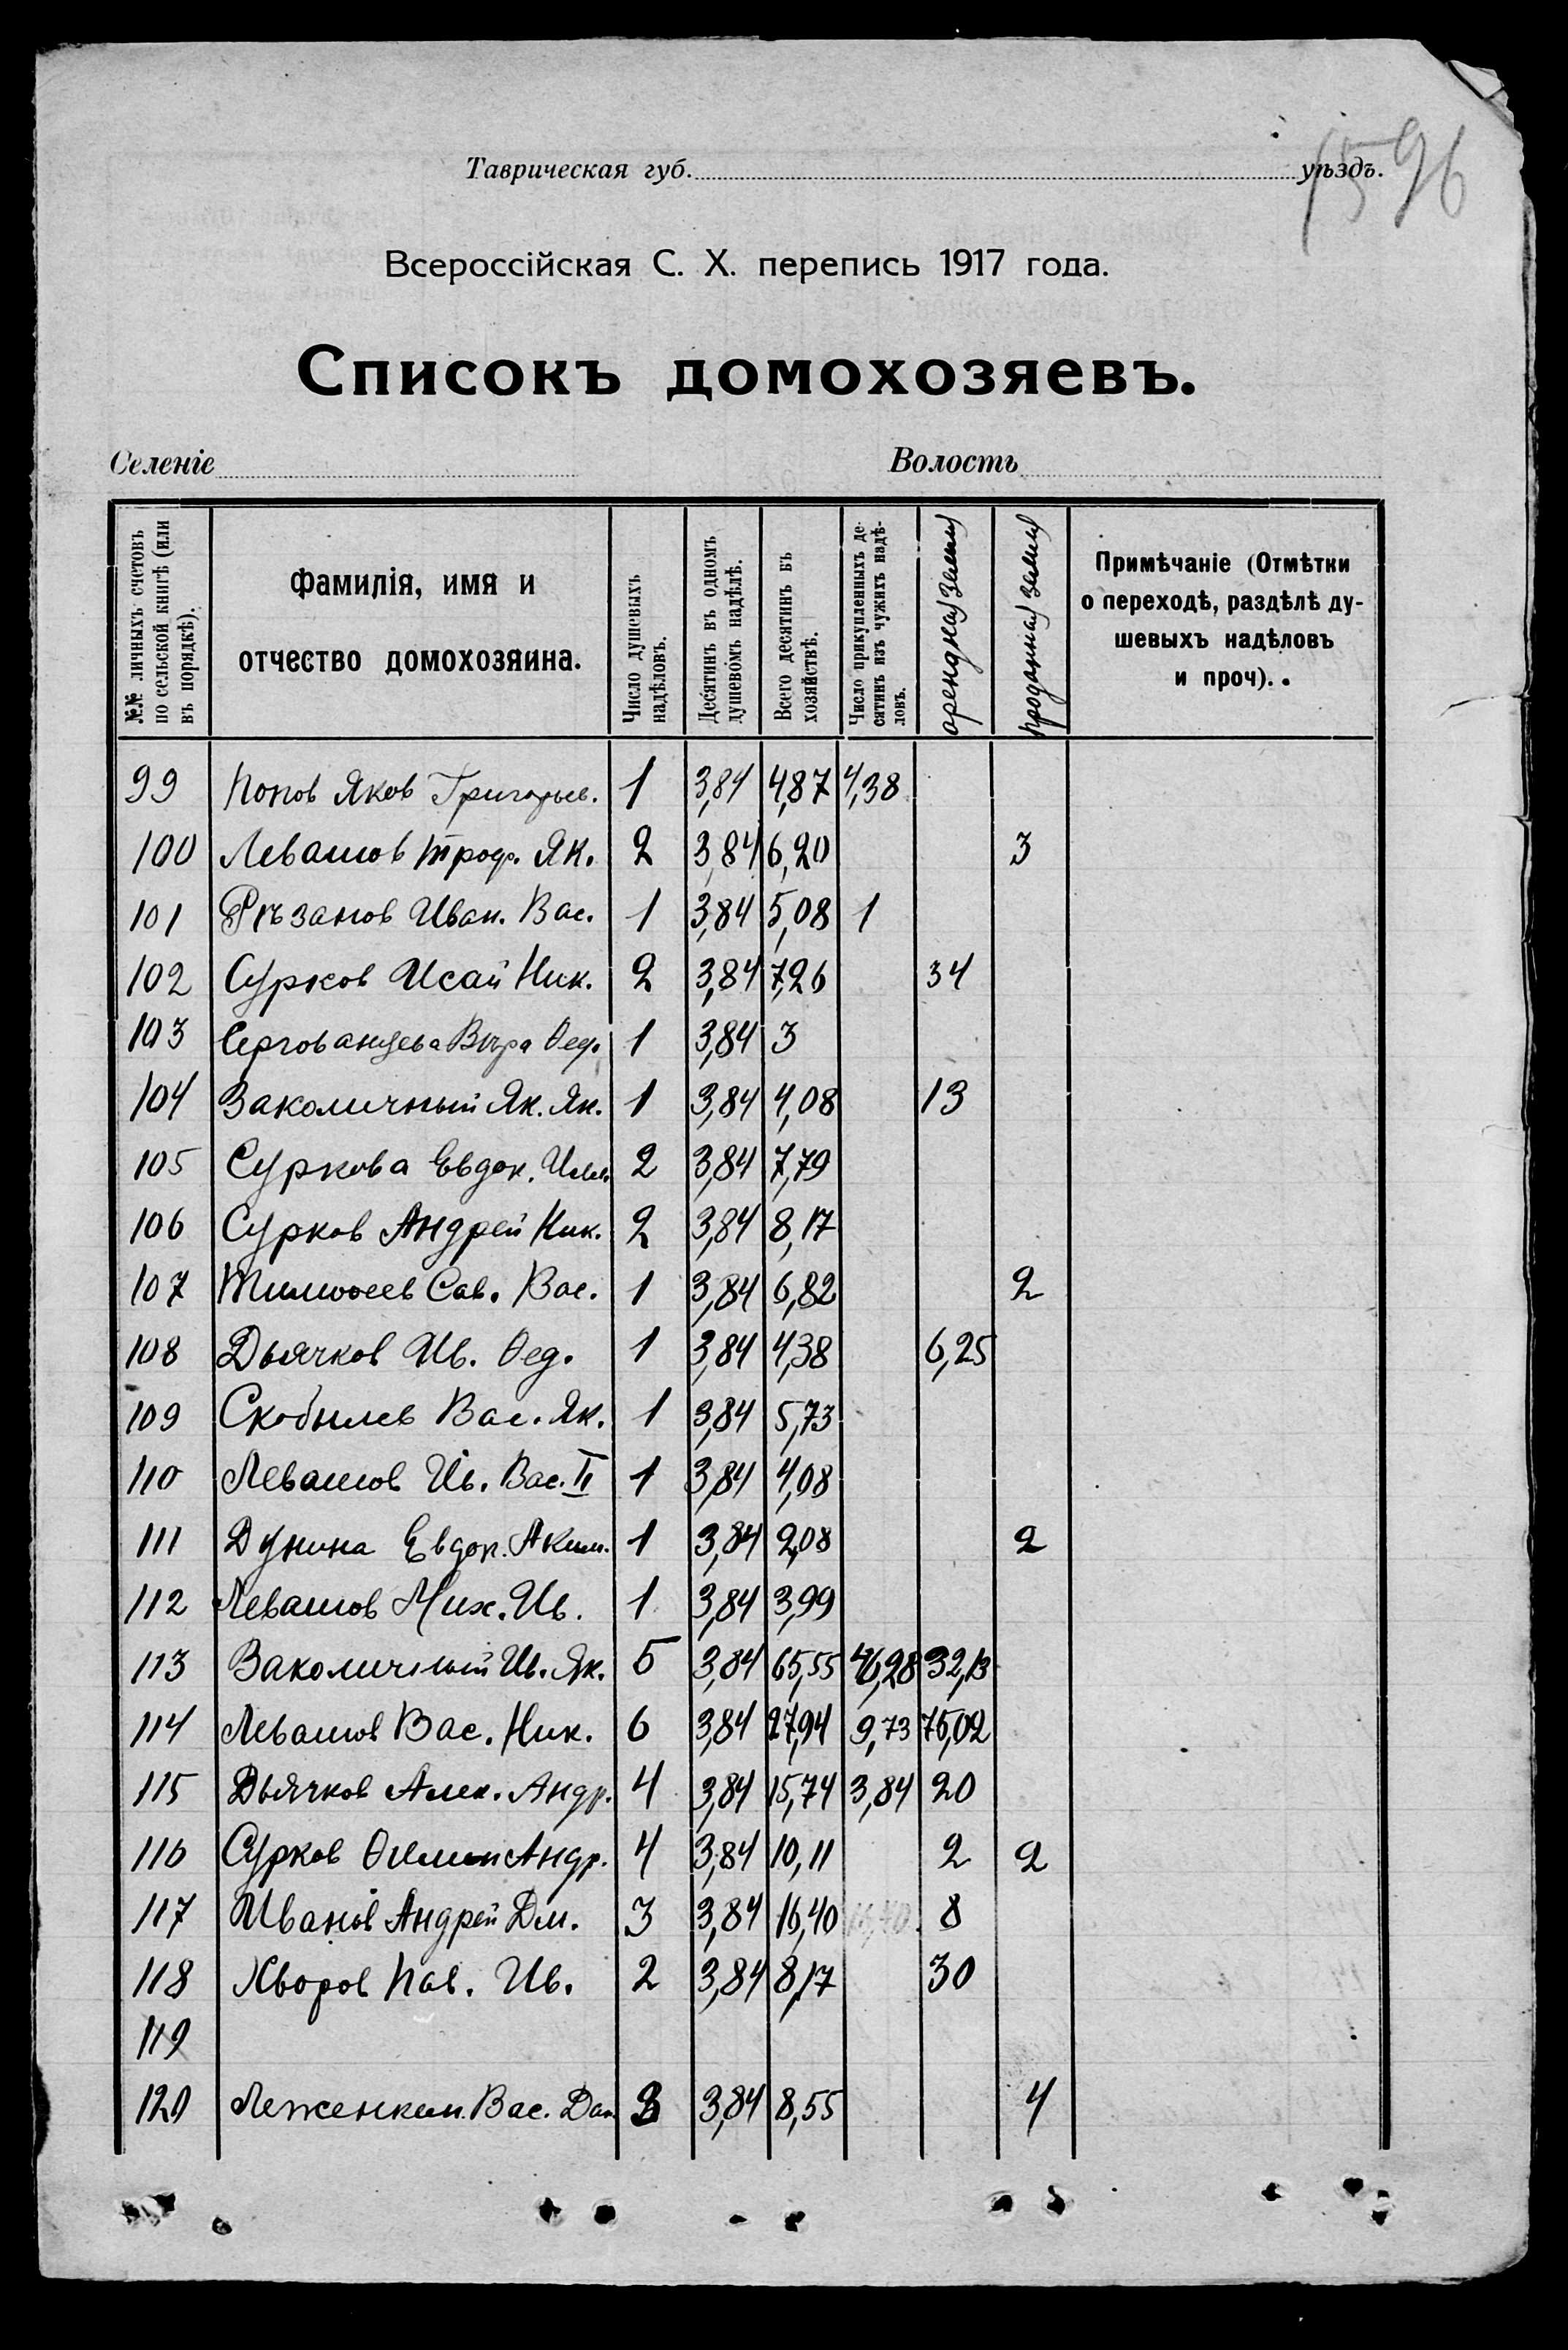 1596
Таврическая губ. уѣздъ.
Всероссійская С. Х. перепись 1917 года.
Списокъ домохозяевъ.
Селеніе Волость
№№ личныхъ счетовъ по сельской книгѣ (или въ порядкѣ).
Фамилія, имя и отчество домохозяина.
Число душевыхъ надѣловъ.
Десятинъ въ одномъ душевомъ надѣлѣ.
Всего десятинъ въ хозяйствѣ.
Число прикупленныхъ десятинъ изъ чужихъ надѣловъ.
арендная земля
проданная земля
Примѣчаніе (Отмѣтки о переходѣ, раздѣлѣ душевыхъ надѣловъ и проч).
99 Попов Яков Григорьев. 1 3,84 4,87 4,38
100 Левашов Троф. Як. 2 3,84 6,20 3
101 Рѣзанов Иван. Вас. 1 3,84 5,08 1
102 Сурков Исай Ник. 2 3,84 7,26 34
103 Сергованцева Вѣра Ѳед. 1 3,84 3
104 Заколичный Як. Як. 1 3,84 4,08 13
105 Суркова Евдок. 2 3,84 7,79
106 Сурков Андрей Ник. 2 3,84 8,17
107 Тимоѳеев Сав. Вас. 1 3,84 6,82 2
108 Дьячков Ив. Ѳед. 1 3,84 4,38 6,25
109 Скобылев Вас. Як. 1 3,84 5,73
110 Левашов Ив. Вас. II 1 3,84 4,08
111 Дунина Евдок. Аким. 1 3,84 2,08 2
112 Левашов Мих. Ив. 1 3,84 3,99
113 Заколичный Ив. Як. 5 3,84 65,55 46,28 32,13
114 Левашов Вас. Ник. 6 3,84 27,94 9,73 75,02
115 Дьячков Алек. Андр. 4 3,84 15,74 3,84 20
116 Сурков Ѳилип Андр. 4 3,84 10,11 2 2
117 Иванов Андрей Дм. 3 3,84 16,40 16,40 8
118 Хворов Пав. Ив. 2 3,84 8,17 30
119
120 Леженкин. Вас. Дан. 3,84 8,55 4